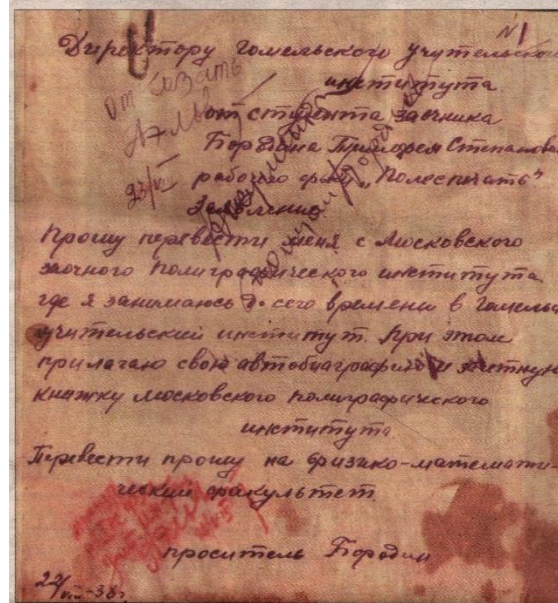 №1
Директору Гомельского учительского
института.
отказать
от студента заочника
Бородина Тимофея Степанова
рабочего ф-ки „Полеспечать"
23/VIII
Заявление
Прошу перевести меня с Московского
заочного Полиграфического института
где я занимаюсь до сего времени в Гомельс
учительский институт. При этом
прилагаю свою автобиографию и зачетную
книжку Московского полиграфического
института
Перевести прошу на физико-математи-
ческий факультет.
проситель Бородин
22/VIII-38г.